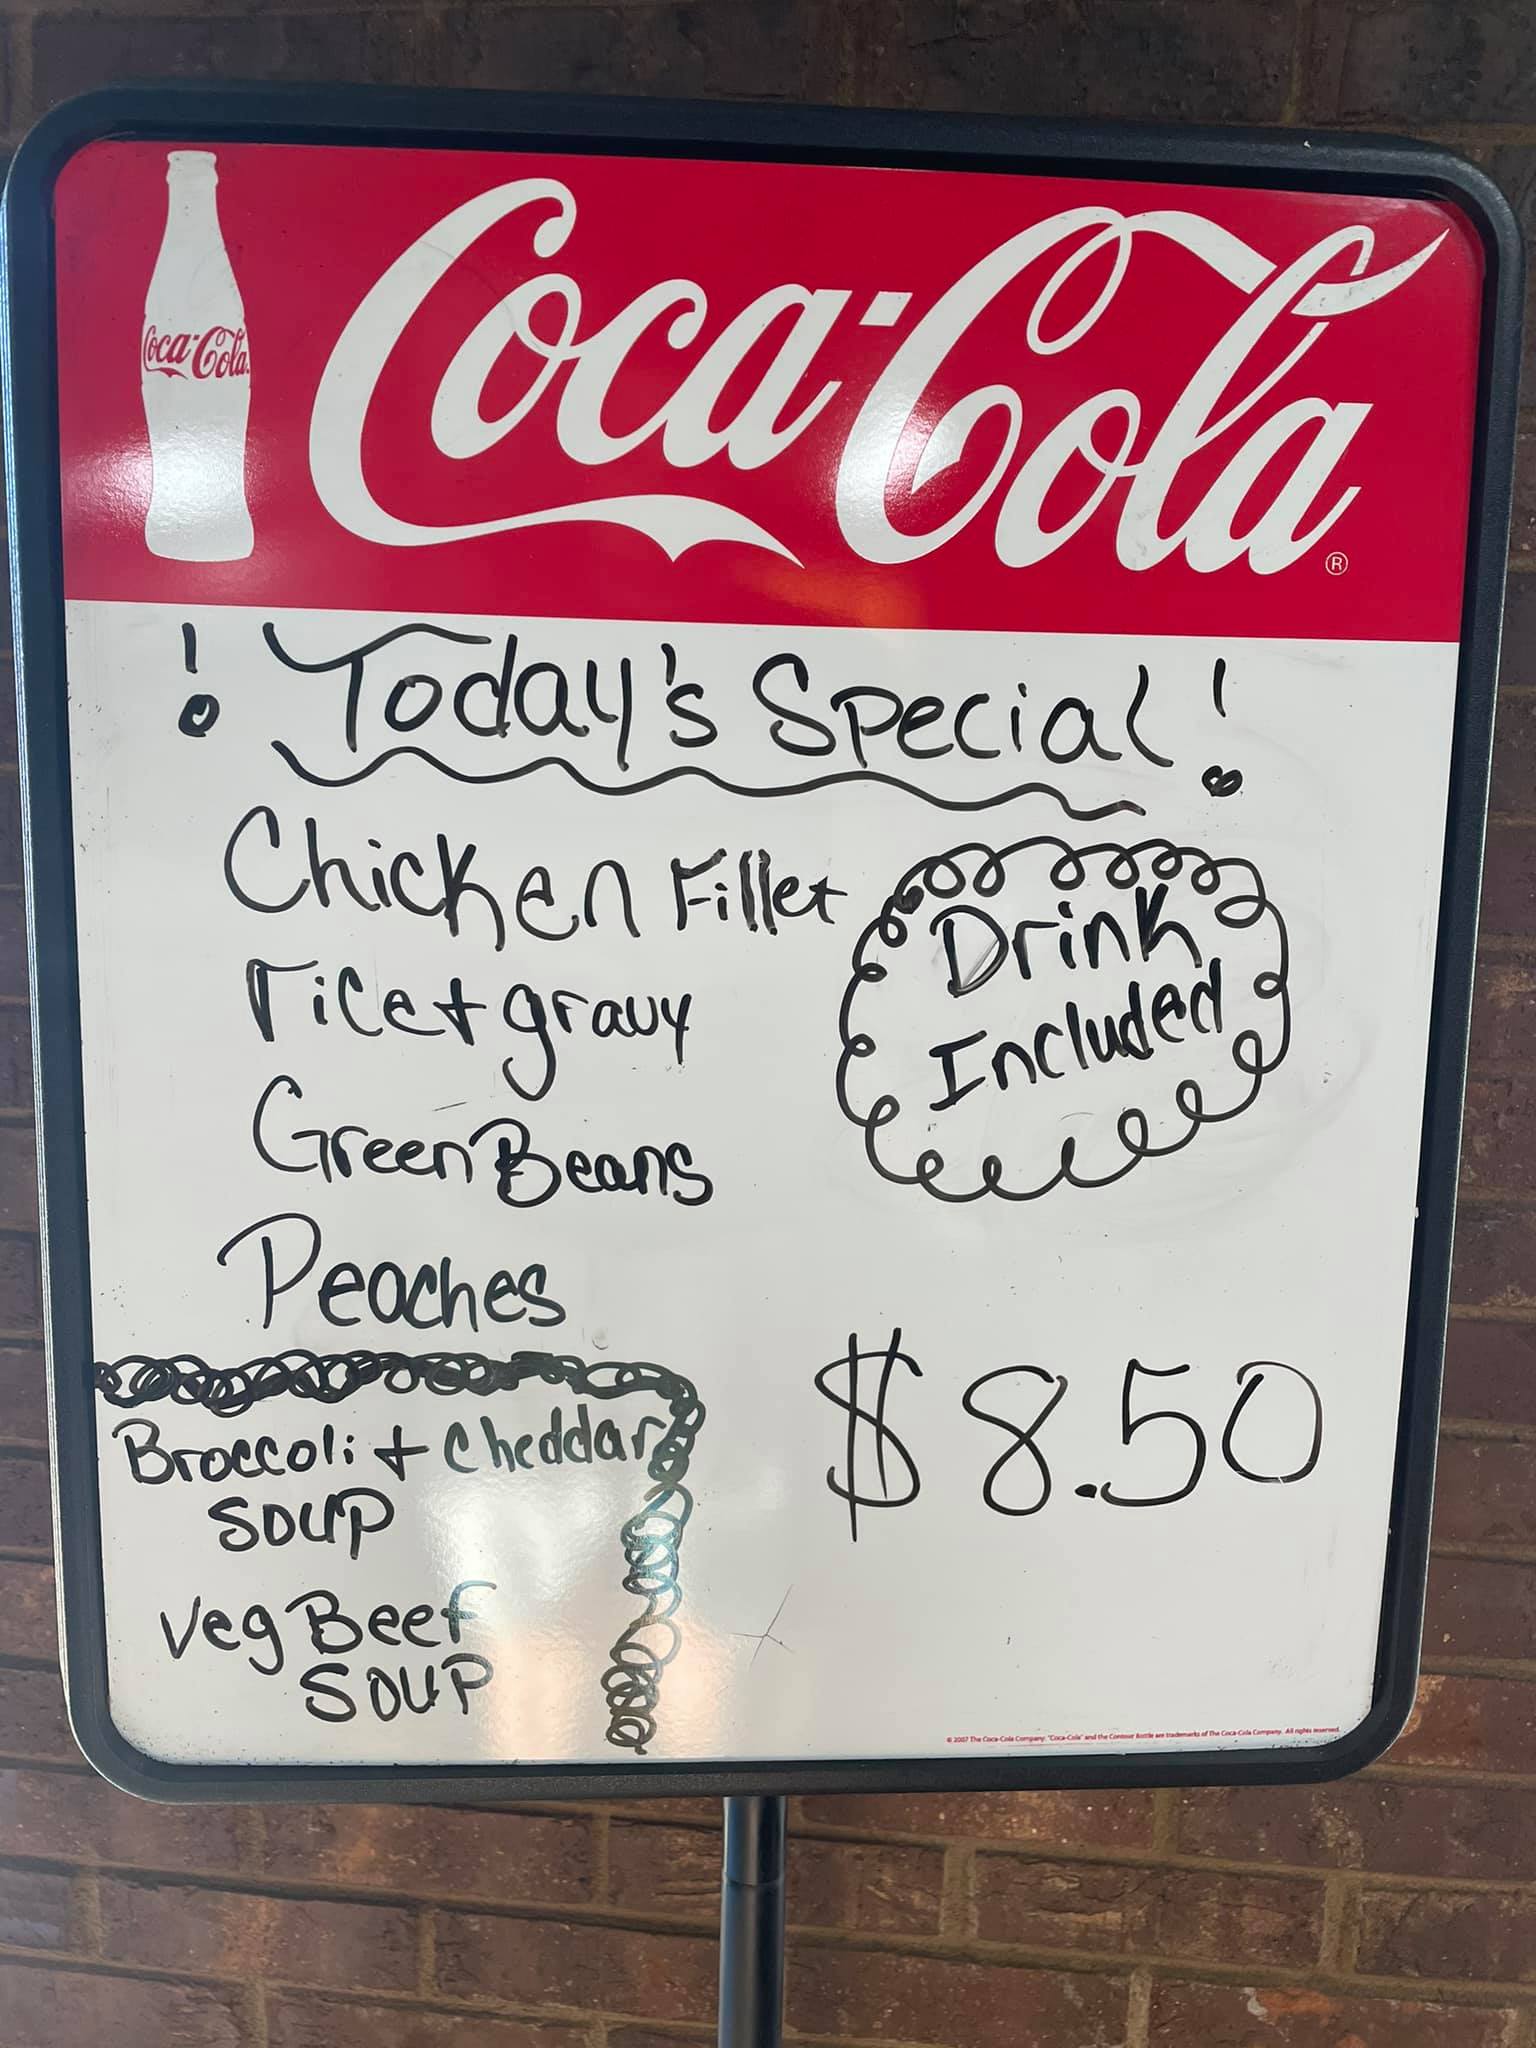 Coca-Cola
Coca-Cola®
! Today's Special !
Chicken Fillet
rice + gravy
Green Beans
Peaches
Drink
Included
$8.50
Broccoli + Cheddar
SOUP
Veg Beef
SOUP
© 2007 The Coca-Cola Company. "Coca-Cola" and the Contour Bottle are trademarks of The Coca-Cola Company. All rights reserved.